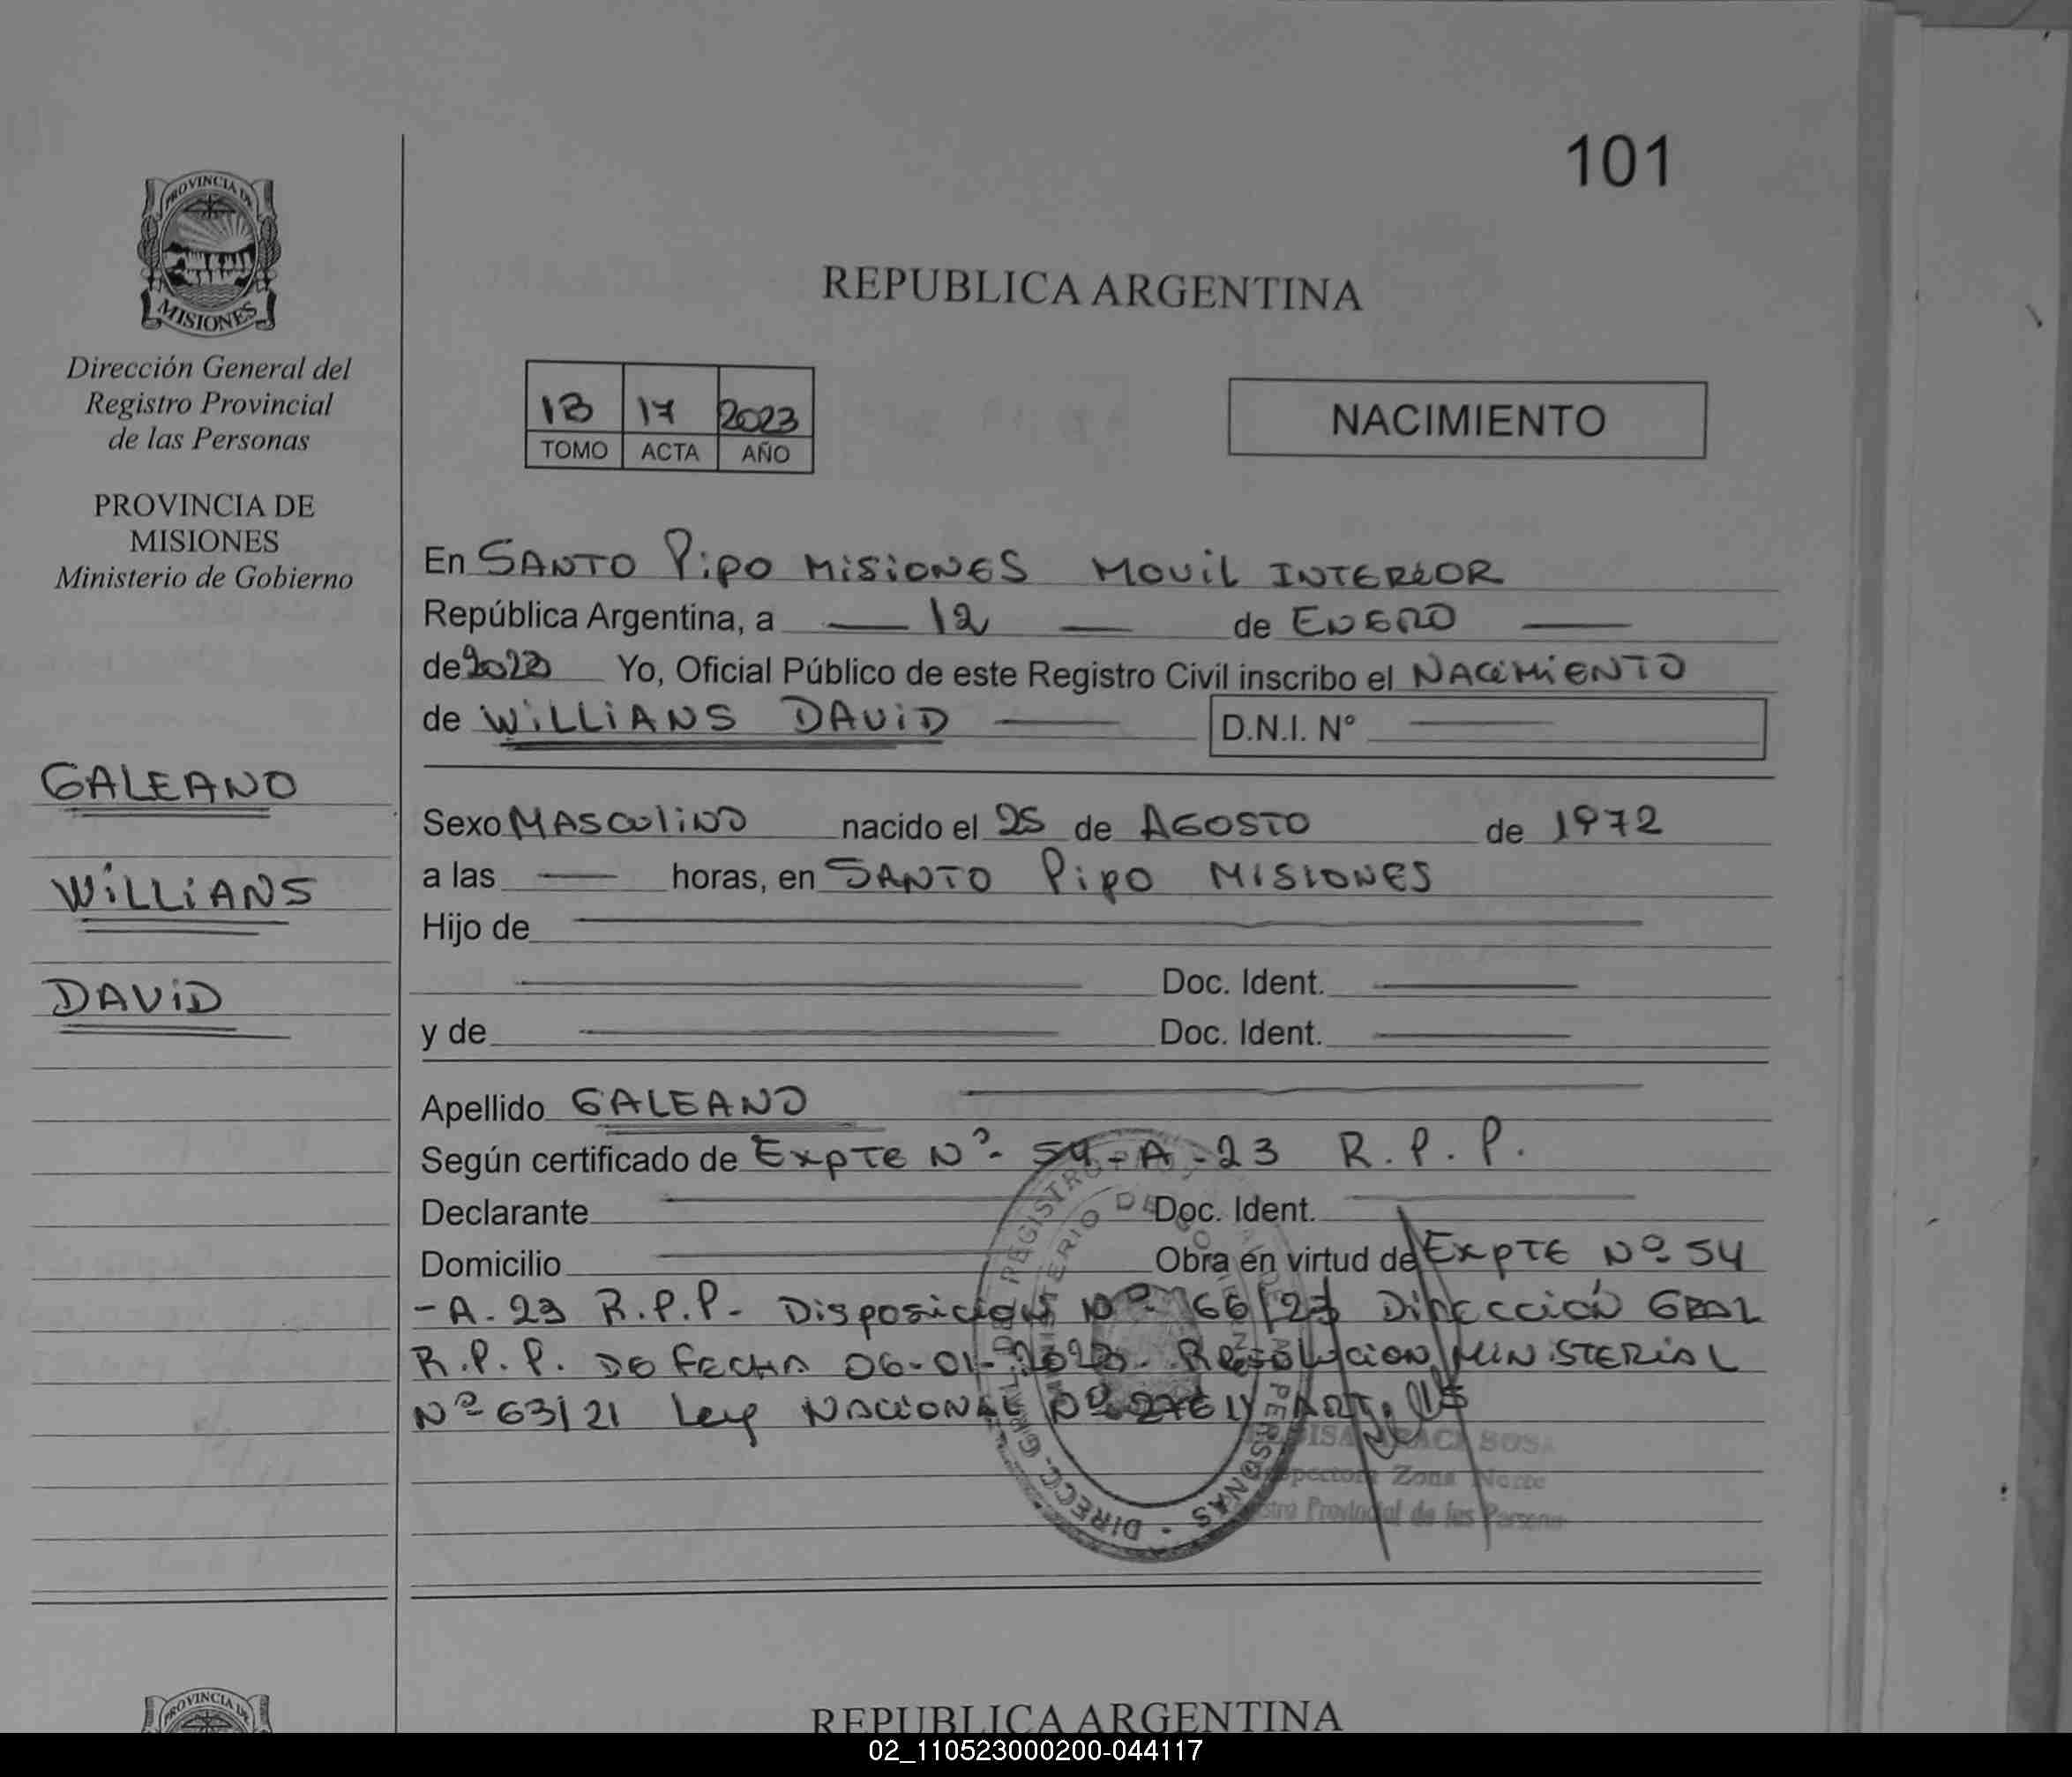 101
PROVINCIA DE
MISIONES
Dirección General del
Registro Provincial
de las Personas
PROVINCIA DE
MISIONES
Ministerio de Gobierno
GALEANO
WiLLiANS
DAViD
REPUBLICA ARGENTINA
13 17 2023
TOMO ACTA AÑO
NACIMIENTO
En SANTO Pipo MiSiONES MOViL INTERIOR
República Argentina, a — 12 — de ENERO —
de 2023 Yo, Oficial Público de este Registro Civil inscribo el NACiMiENTO
de WiLLiANS DAViD — D.N.I. N° —
Sexo MASCULiNO nacido el 25 de AGOSTO de 1972
a las — horas, en SANTO Pipo MISIONES
Hijo de —
— Doc. Ident. —
y de — Doc. Ident. —
Apellido GALEANO —
Según certificado de ExpTE Nº- 54-A-23 R.P.P.
Declarante — Doc. Ident. —
Domicilio — Obra en virtud de ExpTE Nº 54
-A-23 R.P.P- Disposición Nº 166/23 Dirección GRAL
R.P.P. DE FECHA 06-01-2023. Resolucion MiNiSTERiAL
Nº 63/21 Ley NACiONAL Nº ART.
SOSA
Inspectora Zona Norte
Registro Provincial de las Personas
DIRECC. GRAL. REGISTRO PERSONAS
PROVINCIA DE
REPUBLICA ARGENTINA
02_110523000200-044117